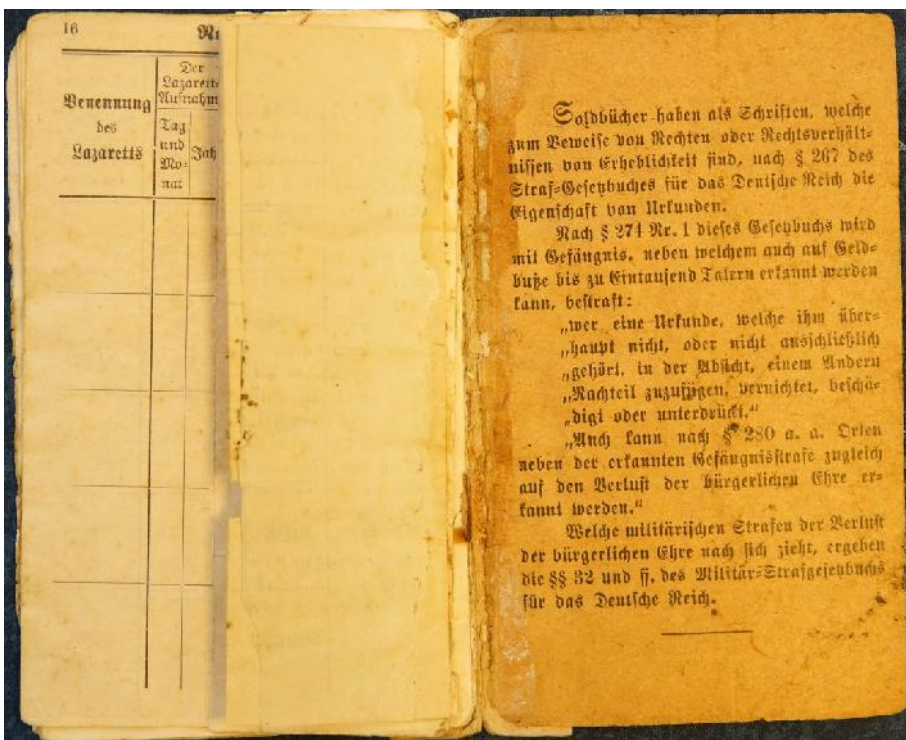 16
Benennung
des
Lazaretts
Der
Lazarett-
Aufnahm
Tag
und
Mo-
nat
Jah
Soldbücher haben als Schriften, welche
zum Beweise von Rechten oder Rechtsverhält-
nissen von Erheblichkeit sind, nach § 267 des
Straf-Gesetzbuches für das Deutsche Reich die
Eigenschaft von Urkunden.
Nach § 274 Nr. 1 dieses Gesetzbuchs wird
mit Gefängnis, neben welchem auch auf Geld-
buße bis zu Eintausend Talern erkannt werden
kann, bestraft:
„wer eine Urkunde, welche ihm über-
„haupt nicht, oder nicht ausschließlich
„gehört, in der Absicht, einem Andern
„Nachteil zuzufügen, vernichtet, beschä-
„digt oder unterdrückt.“
„Auch kann nach § 280 a. a. Orten
neben der erkannten Gefängnisstrafe zugleich
auf den Verlust der bürgerlichen Ehre er-
kannt werden.“
Welche militärischen Strafen der Verlust
der bürgerlichen Ehre nach sich zieht, ergeben
die §§ 32 und ff. des Militär-Strafgesetzbuchs
für das Deutsche Reich.